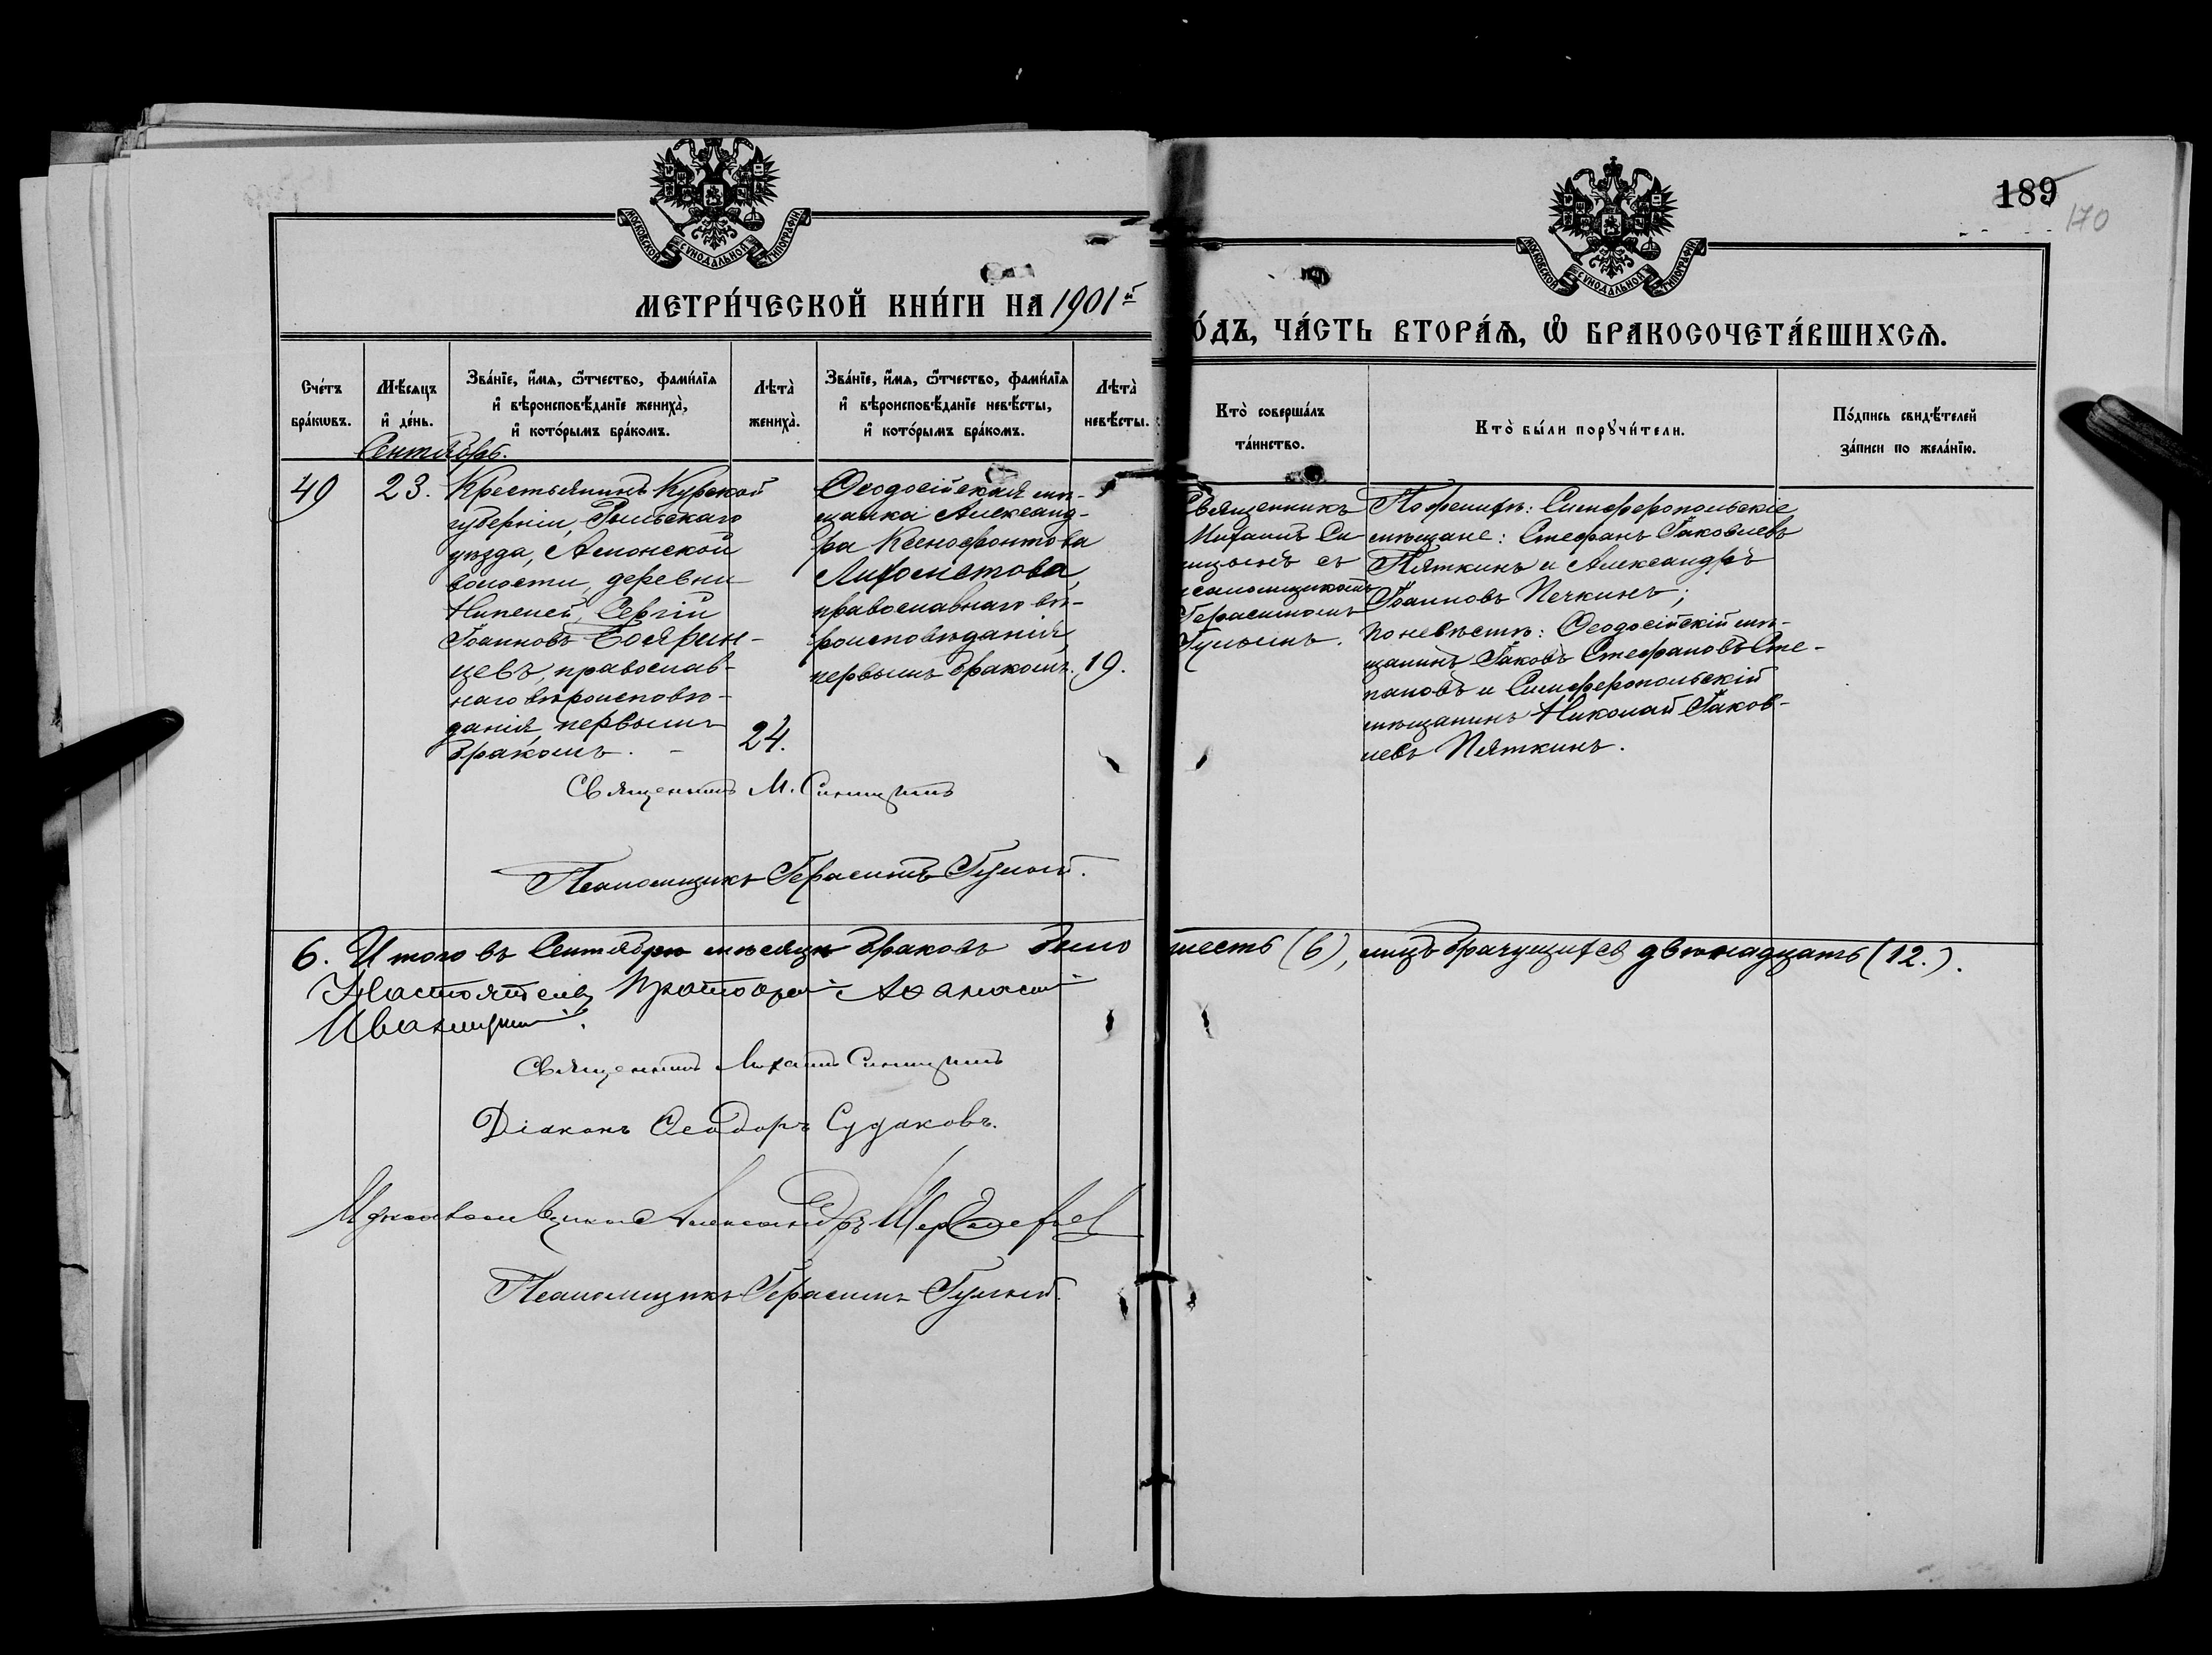 189
170
МОСКОВСКОЙ СУНОДАЛЬНОЙ ТИПОГРАФІИ
МОСКОВСКОЙ СУНОДАЛЬНОЙ ТИПОГРАФІИ
МЕТРИ́ЧЕСКОЙ КНИ́ГИ НА 1901й
О́ДЪ, ЧА́СТЬ ВТОРА́Ѧ, Ѡ БРАКОСОЧЕТА́ВШИХСѦ.
Сче́тъ
бра́кѡвъ.
Мѣ́сяцъ
и҆ де́нь.
Зва́нїе, и҆́мя, ѻ҆́тчество, фами́лїя
и҆ вѣроисповѣ́данїе жениха̀,
и҆ кото́рымъ бра́комъ.
Лѣта̀
жениха̀.
Зва́нїе, и҆́мя, ѻ҆́тчество, фами́лїя
и҆ вѣроисповѣ́данїе невѣ́сты,
и҆ кото́рымъ бра́комъ.
Лѣта̀
невѣ́сты.
Кто̀ соверша́лъ
та́инство.
Кто̀ бы́ли порꙋчи́тели.
По́дпись свидѣ́телей
за́писи по жела́нїю.
Сентябрь.
49
23.
Крестьянинъ Курской
губерніи, Рыльскаго
уѣзда,
волости, деревни
Сергій
Іоанновъ Боярин-
цевъ, православ-
наго вѣроисповѣ-
данія, первымъ
бракомъ. -
24.
Ѳеодосійская мѣ-
щанка Александ-
ра Ксенофонтова
православнаго вѣ-
роисповѣданія,
первымъ бракомъ.
19.
Священникъ
Михаилъ Си
ницынъ съ
псаломщикомъ
Герасимомъ
Гулымъ.
По женихѣ: Симферопольскіе
мѣщане: Стефанъ Іаковлевъ
Пяткинъ и Александръ
Іоанновъ Печкинъ;
по невѣстѣ: Ѳеодосійскій мѣ-
щанинъ Іаковъ Стефановъ Сте-
пановъ и Симферопольскій
мѣщанинъ Николай Іаков-
левъ Пяткинъ.
Священникъ М. Синицынъ
Псаломщикъ Герасимъ Гулый.
6. Итого въ Сентябрѣ мѣсяцѣ браковъ было шесть (6), лицъ брачущихся двѣнадцать (12.).
Настоятель Протоіерей Аѳанасій
Священникъ Михаилъ Синицынъ
Діаконъ Ѳеодоръ Судаковъ.
Александръ
Псаломщикъ Герасимъ Гулый.